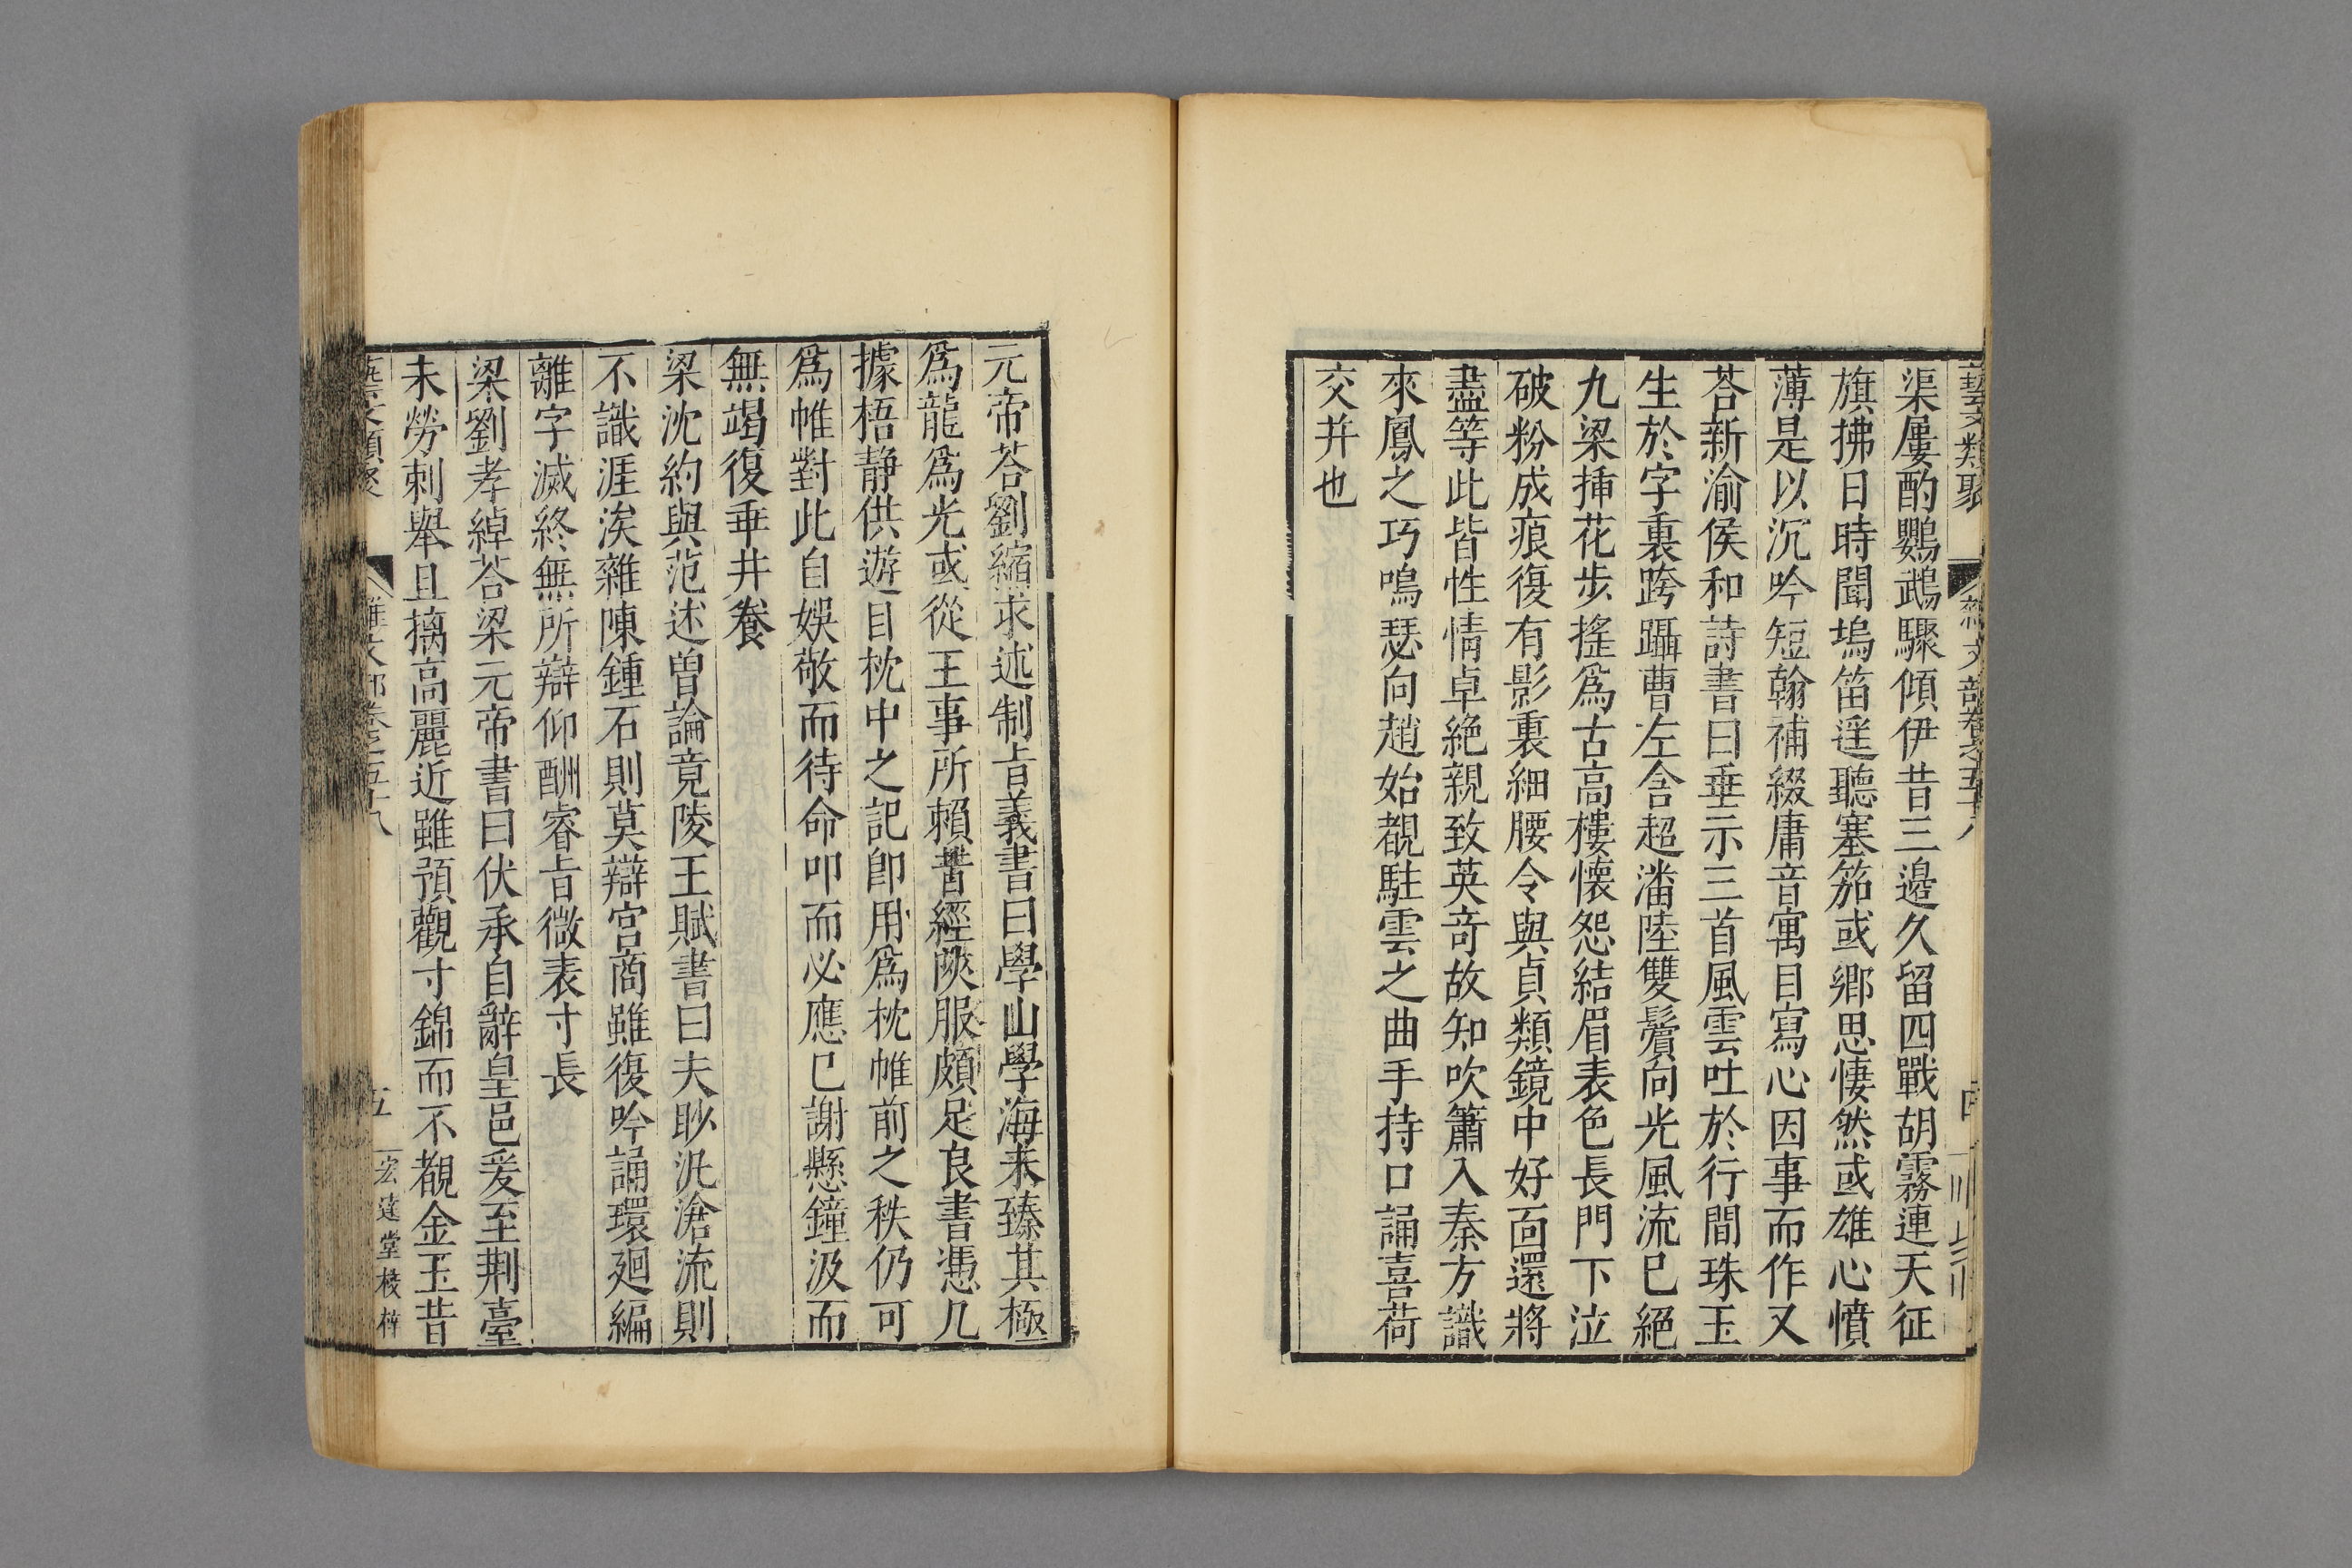 藝文類聚 雜文部卷之五十八 四
渠屢酌鸚鵡驟傾伊昔三邉久留四戰胡霧連天征
旗拂日時聞塢笛遥聽塞笳或鄉思悽然或雄心憤
薄是以沉吟短翰補綴庸音寓目寫心因事而作又
荅新渝侯和詩書曰垂示三首風雲吐於行間珠玉
生於字裏跨躡曹左含超潘陸雙鬢向光風流已絕
九梁揷花步搖爲古高樓懷怨結眉表色長門下泣
破粉成痕復有影裏細腰令與貞類鏡中好面還將
畵等此皆性情卓絕親致英竒故知吹簫入秦方識
來鳳之巧鳴瑟向趙始覩駐雲之曲手持口誦喜荷
交并也
元帝荅劉縮求述制旨義書曰學山學海未臻其極
爲龍爲光或從王事所賴書經陜服頗足良書憑几
據梧静供遊目枕中之記卽用爲枕帷前之秩仍可
爲帷對此自娛敬而待命叩而必應已謝懸鐘汲而
無竭復垂井養
梁沈約與范述曾論竟陵王賦書曰夫眇汎滄流則
不識涯涘雜陳鍾石則莫辯宮商雖復吟誦環廻編
離字滅終無所辯仰酬睿旨微表寸長
梁劉孝綽荅梁元帝書曰伏承自辭皇邑爰至荆臺
未勞刺舉且摛高麗近雖預觀寸錦而不覩金玉昔
藝文類聚 雜文部卷之五十八 五 宏達堂校梓